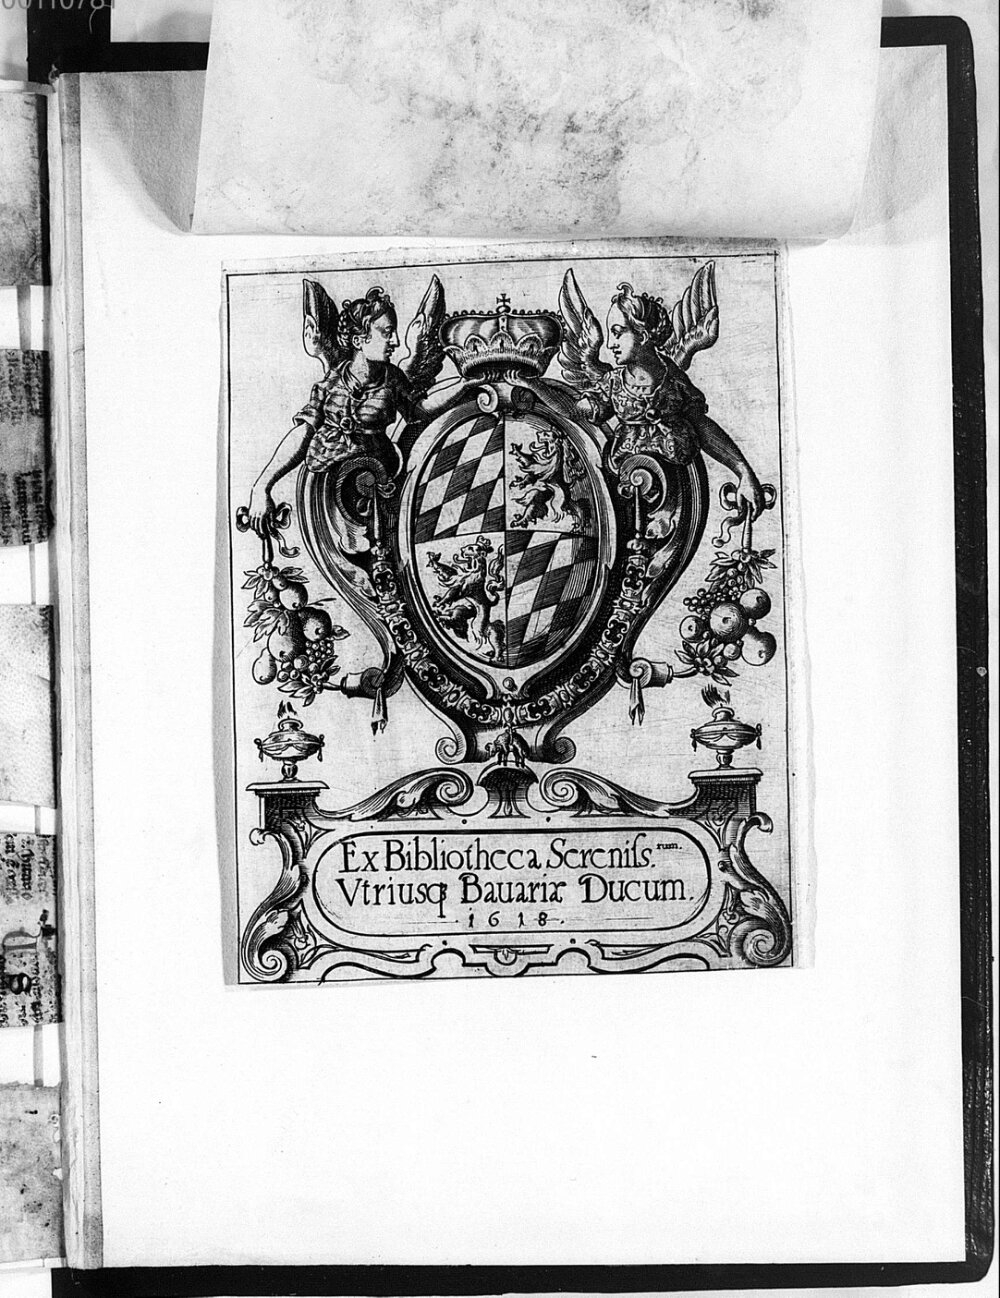 Ex Bibliotheca Sereniſs.rum.
Vtriusq̃ Bavariæ Ducum.
1618.